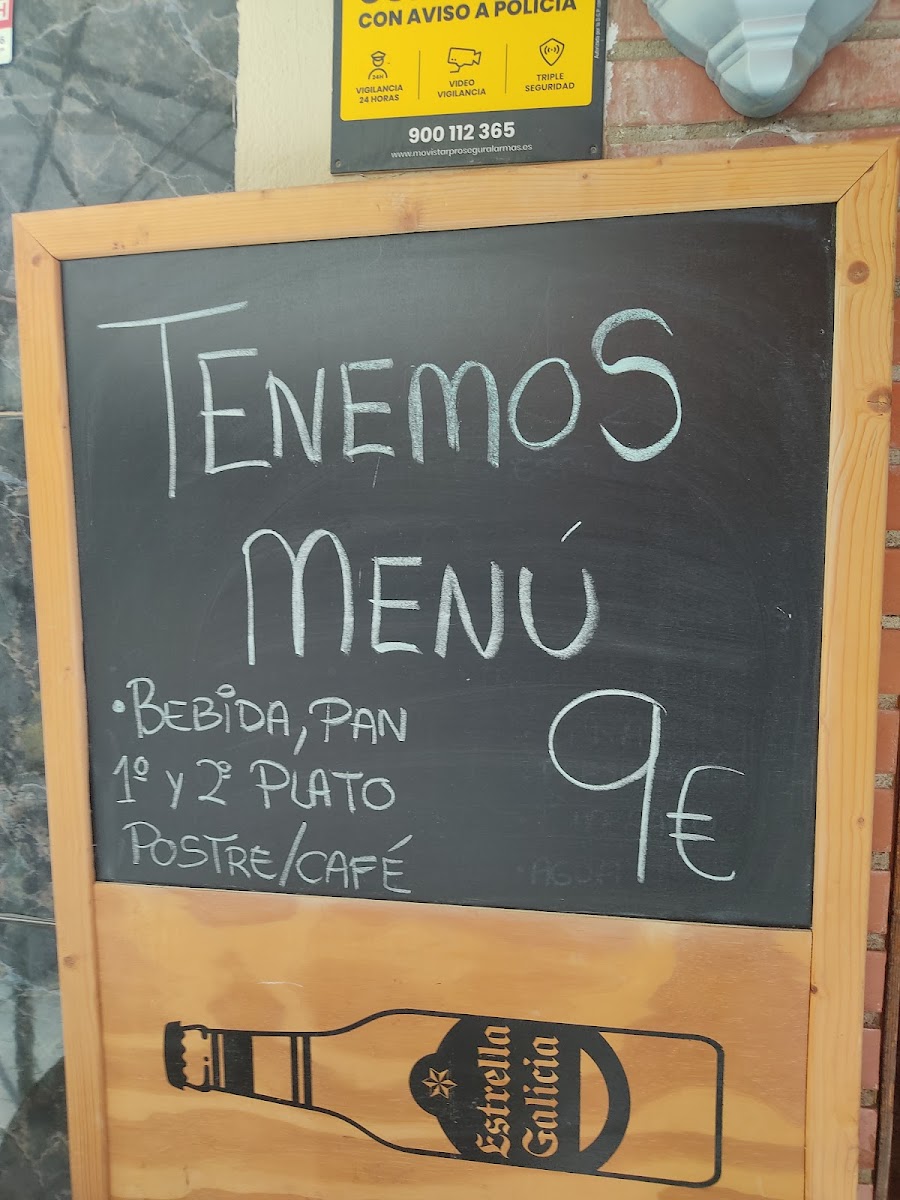 CON AVISO A POLICÍA
VIGILANCIA
24 HORAS
VIDEO
VIGILANCIA
TRIPLE
SEGURIDAD
900 112 365
www.movistarproseguralarmas.es
TENEMOS
MENÚ
• BEBIDA, PAN
1º y 2º PLATO
POSTRE/CAFÉ
9€
Estrella
Galicia